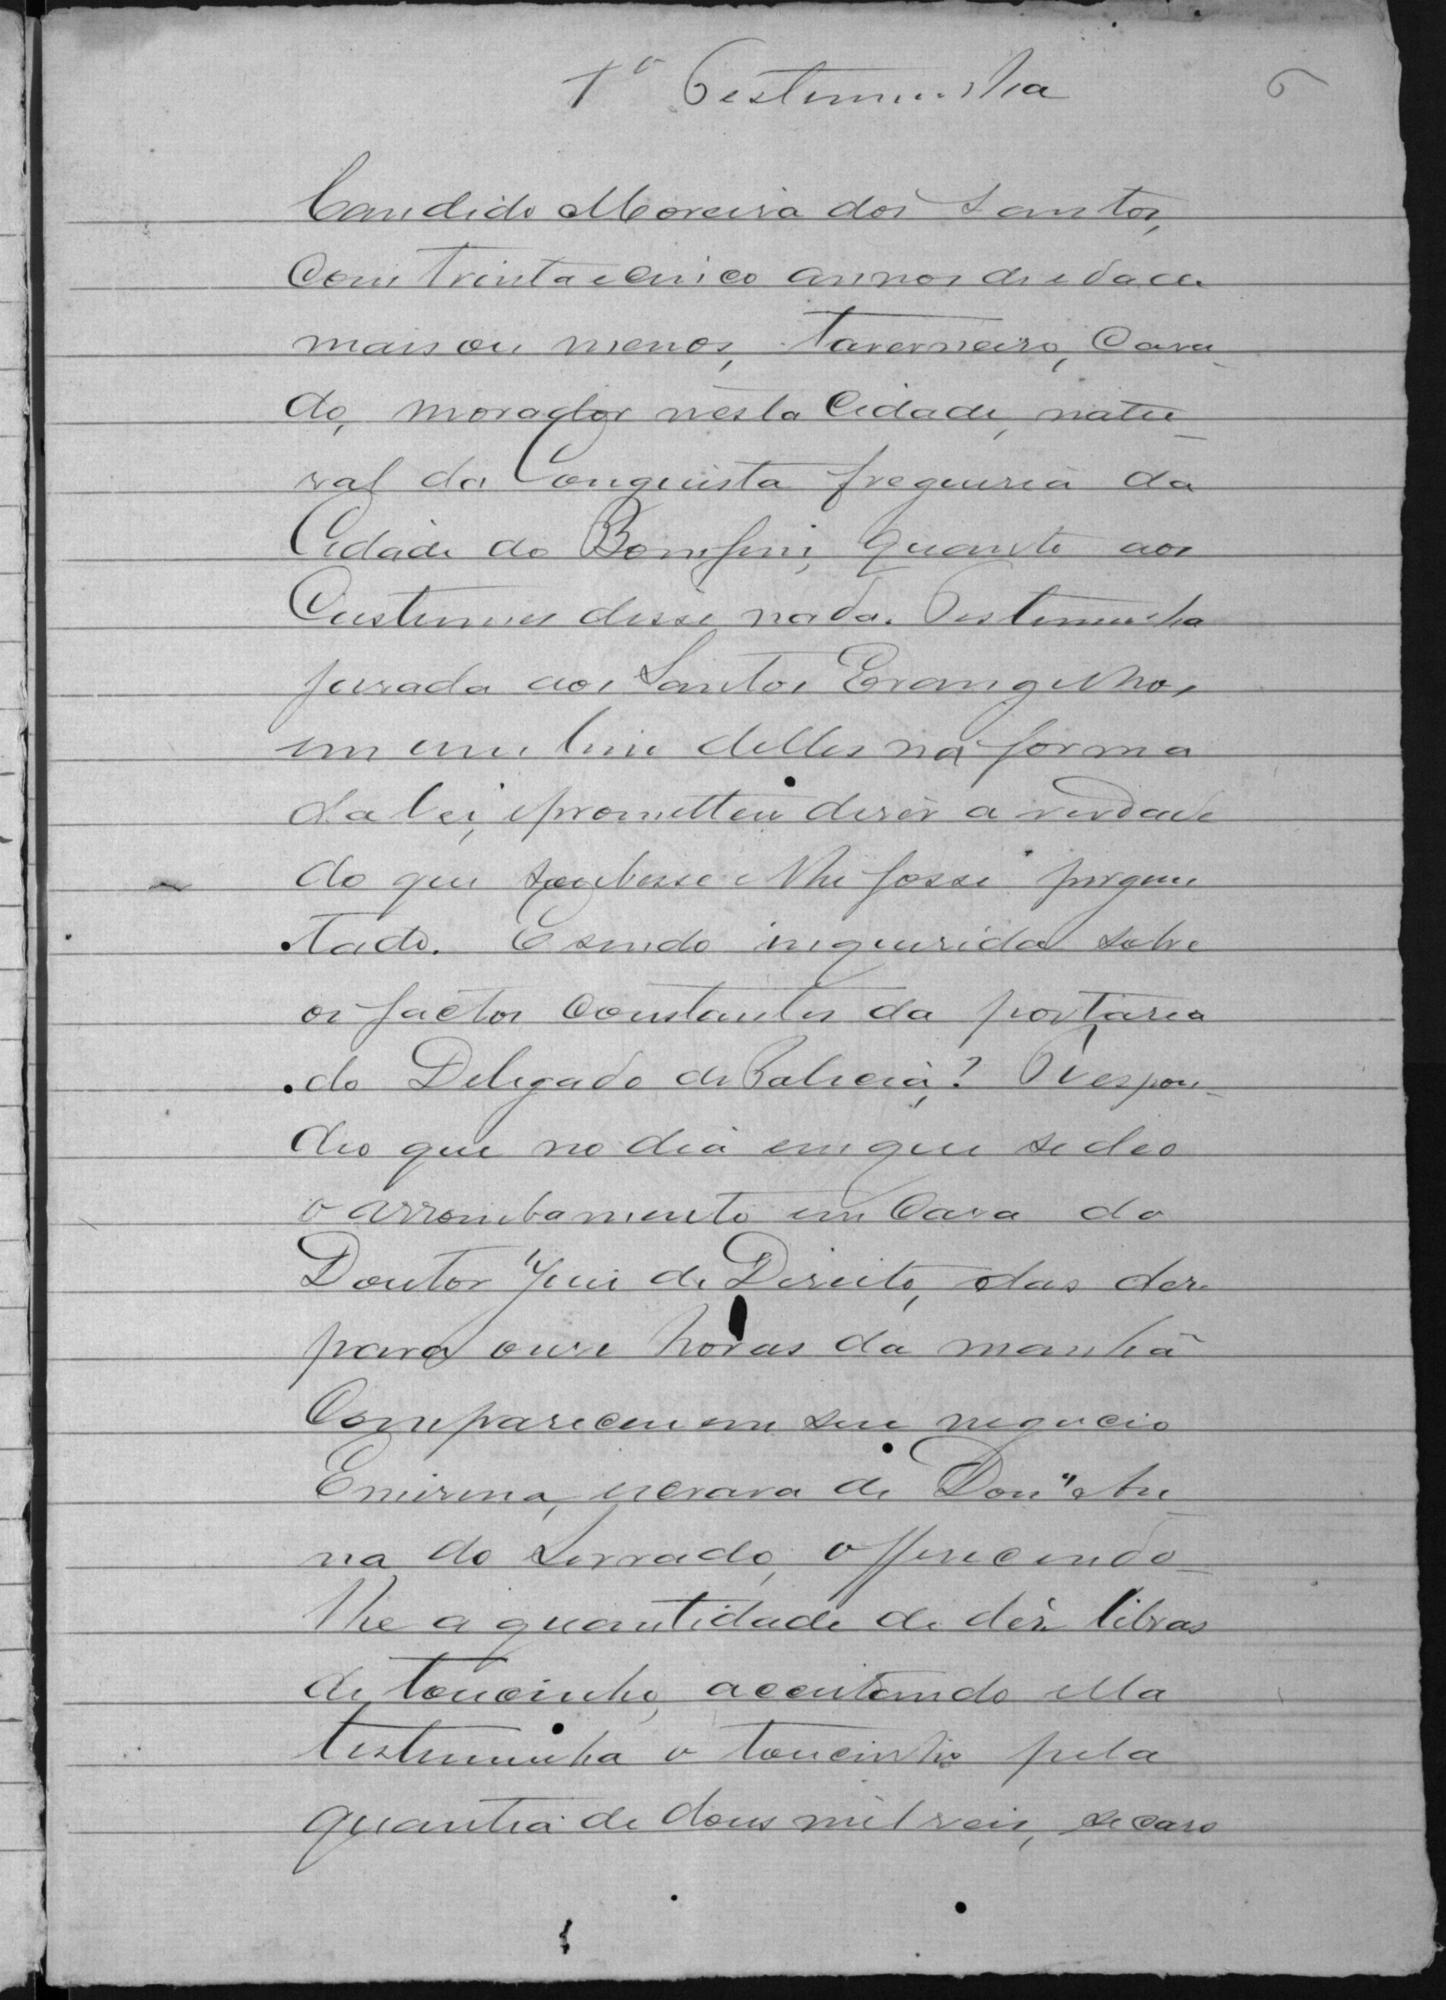 1ª Testemunha
6
Candido Moreira dos Santos,
com trinta e cinco annos de idade
mais ou menos, taverneiro, casa-
do, morador nesta Cidade, natu-
ral da Conquista freguesia da
Cidade do Bomfim, quanto aos
Custumes disse nada. Testemunha
jurada aos Santos Evangelhos,
em um livro delles na forma
da lei, e prometteu diser a verdade
do que soubesse e lhe fosse pergun
tado. E sendo inquerida sobre
os factos constantes da portaria
do Delegado de Policia,? Respon-
deo que no dia em que se deo
o arrombamento em Casa do
Doutor Juis de Direito, das des
para onse horas da manhã
Compareceu em seu negocio
Emirena, escrava de Donª An-
na do Serrado, offerecendo-
lhe a quantidade de dés libras
de toucinho, acceitando ella
testemunha o toucinho pela
quantia de dous mil reis, se caso